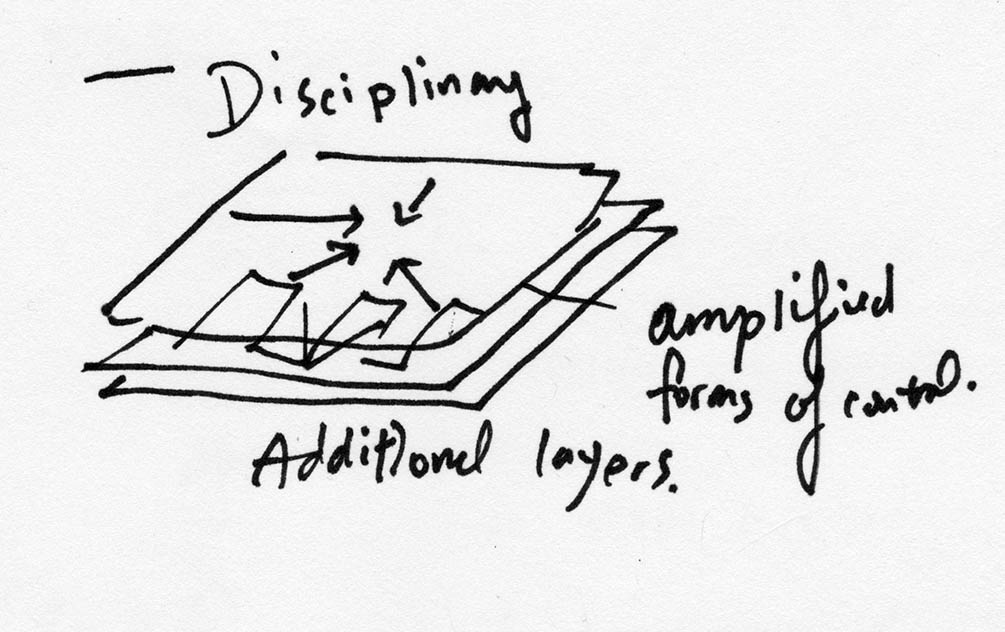 — Disciplinary
amplified
forms of control.
Additional layers.